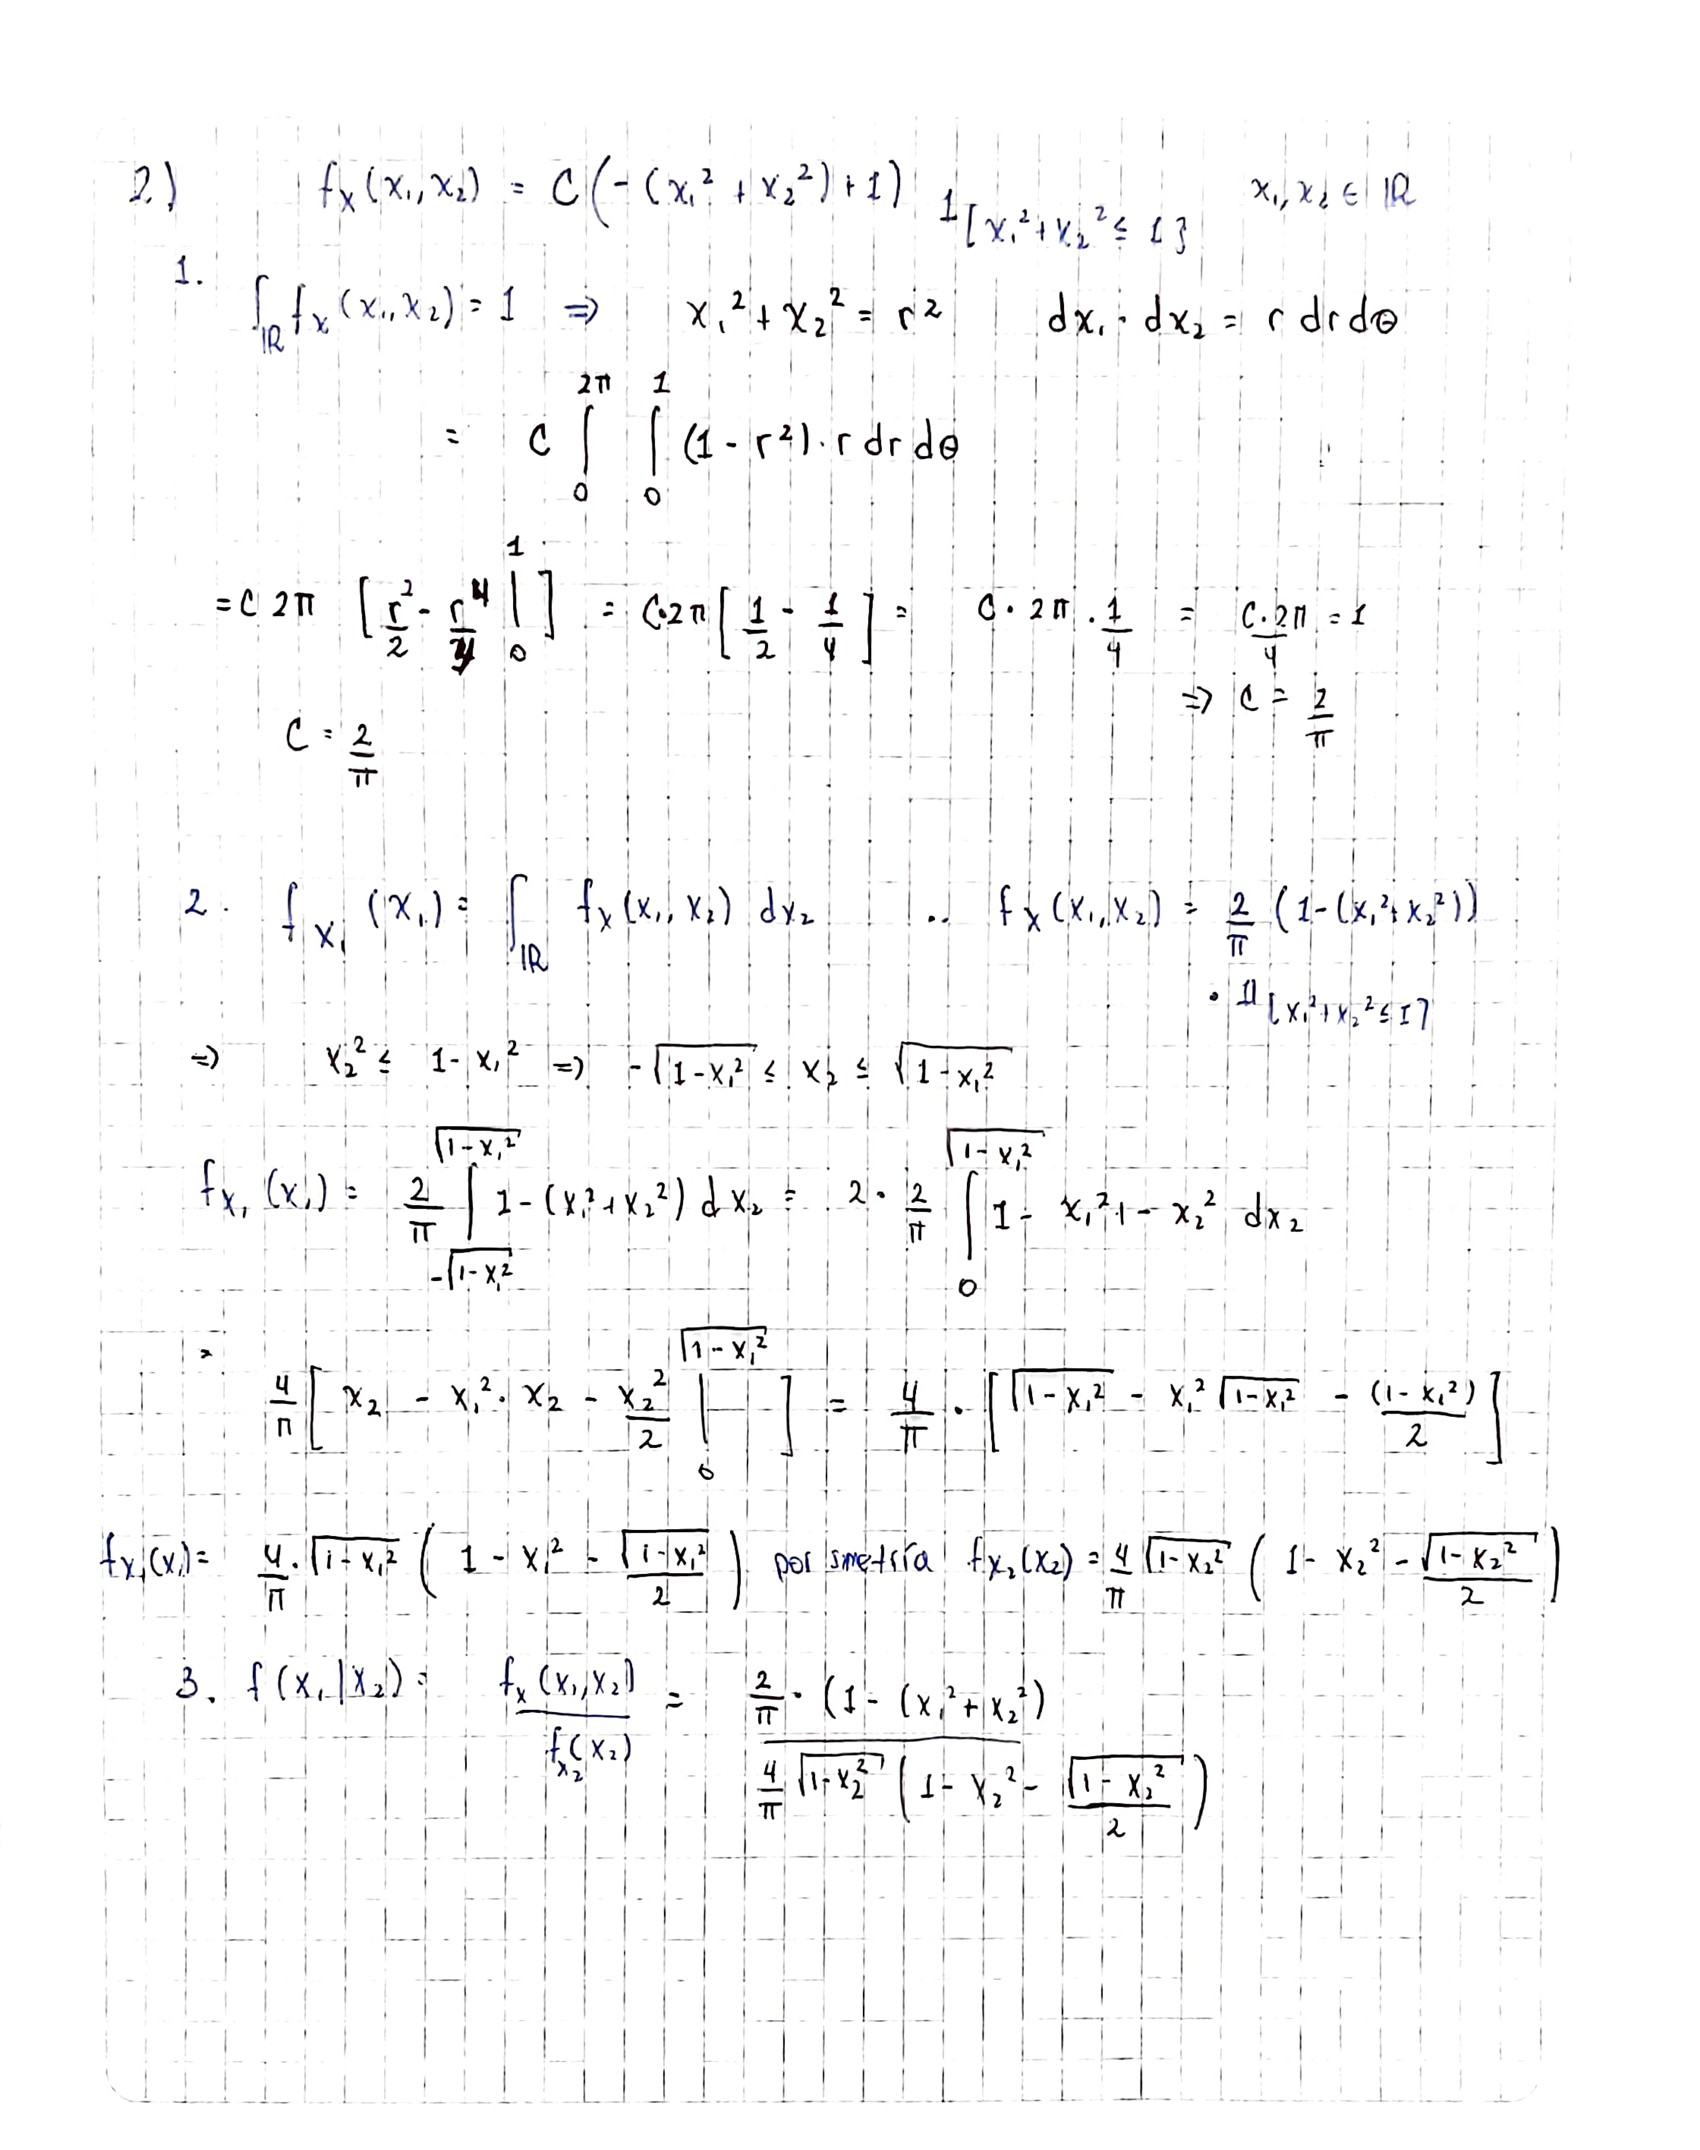 2.) fₓ(x₁,x₂) = C(-(x₁² + x₂²)+1) 1[x₁²+x₂² ≤ 1} x₁,x₂ ∈ ℝ
1. ∫_ℝ fₓ(x₁,x₂) = 1 ⇒ x₁² + x₂² = r² dx₁·dx₂ = r dr dθ
= C ∫₀^{2π} ∫₀^{1} (1 - r²)·r dr dθ
= C 2π [r²/2 - r⁴/4 |₀¹] = C·2π[1/2 - 1/4] = C·2π·1/4 = C·2π/4 = 1
⇒ C = 2/π
C = 2/π
2. f_{X₁}(x₁) = ∫_ℝ fₓ(x₁,x₂) dx₂ .. fₓ(x₁,x₂) = 2/π (1-(x₁²+x₂²))
· 1[x₁²+x₂² ≤ 1]
⇒ x₂² ≤ 1-x₁² ⇒ -√(1-x₁²) ≤ x₂ ≤ √(1-x₁²)
f_{X₁}(x₁) = 2/π ∫_{-√(1-x₁²)}^{√(1-x₁²)} 1-(x₁²+x₂²) dx₂ = 2·2/π ∫₀^{√(1-x₁²)} 1- x₁²+- x₂² dx₂
= 4/π [x₂ - x₁²·x₂ - x₂²/2 |₀^{√(1-x₁²)}] = 4/π · [√(1-x₁²) - x₁²√(1-x₁²) - (1-x₁²)/2]
f_{X₁}(x₁) = 4/π·√(1-x₁²) (1 - x₁² - √(1-x₁²)/2) por simetría f_{X₂}(x₂) = 4/π √(1-x₂²) (1- x₂² - √(1-x₂²)/2)
3. f(x₁|x₂) = fₓ(x₁,x₂)/f_{X₂}(x₂) = 2/π·(1-(x₁²+x₂²) / 4/π √(1-x₂²) (1- x₂² - √(1-x₂²)/2)